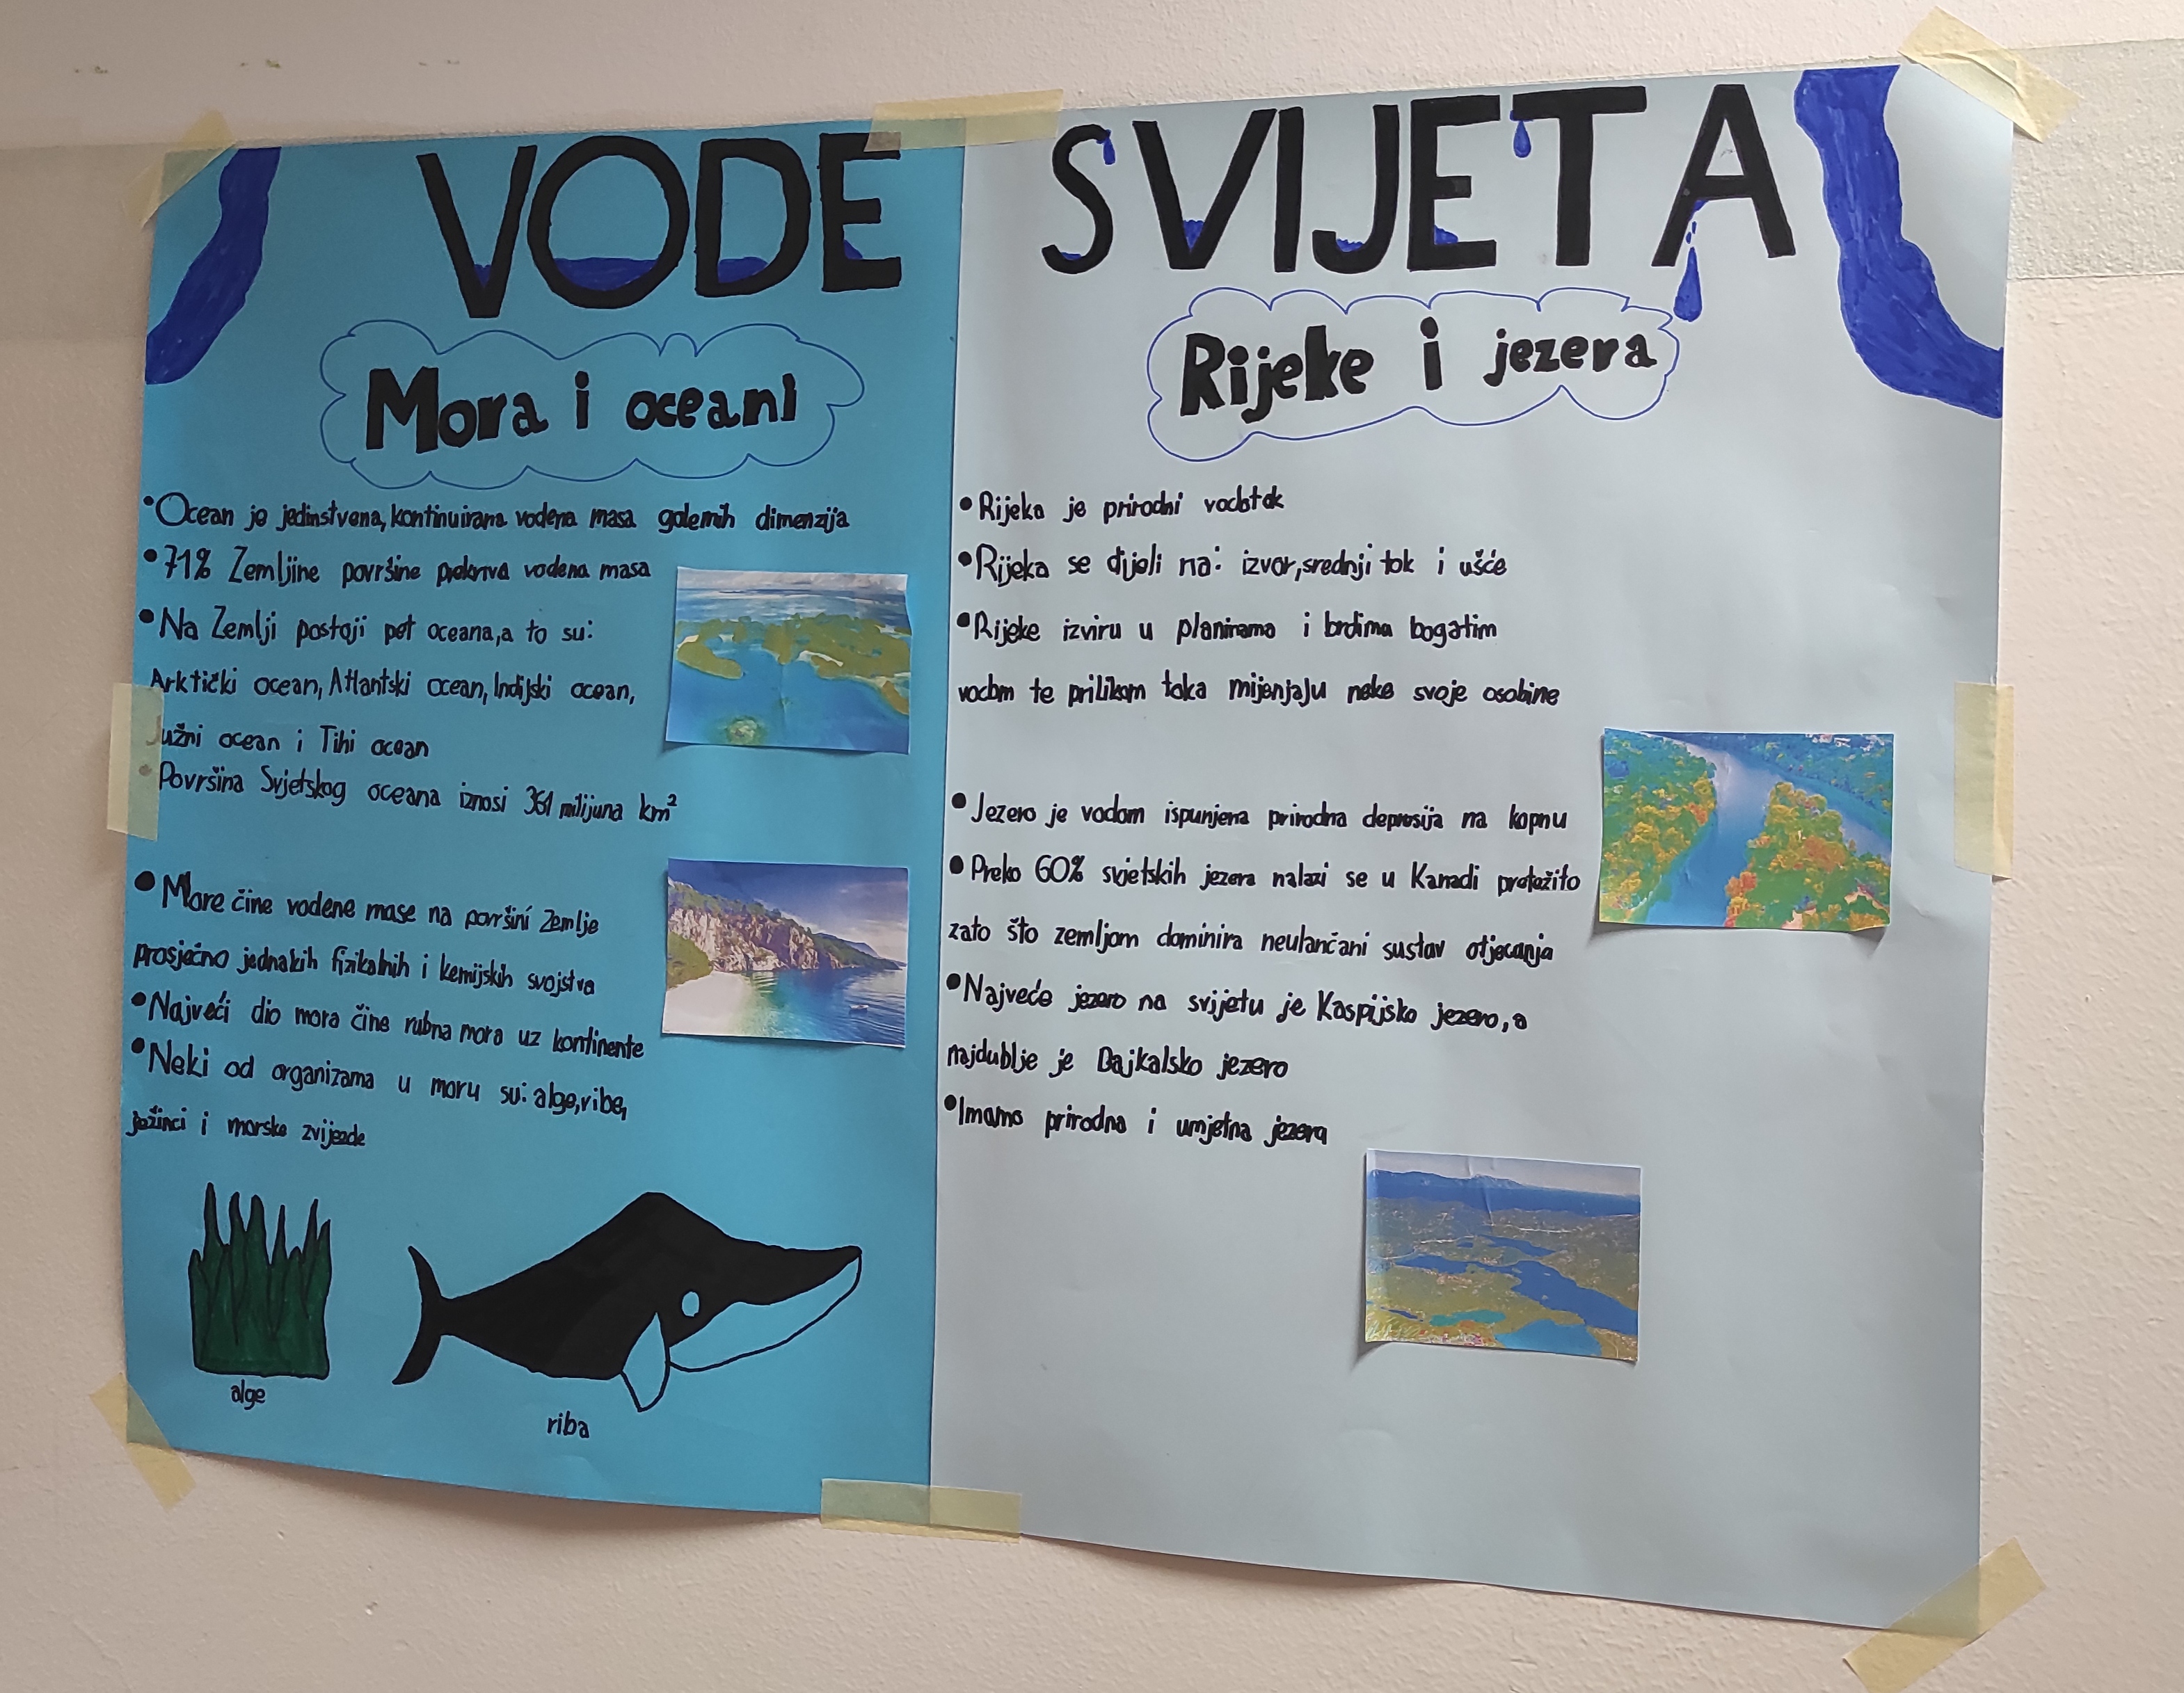 VODE SVIJETA
Mora i oceani
•Ocean je jedinstvena, kontinuirana vodena masa golemih dimenzija
•71% Zemljine površine prekriva vodena masa
•Na Zemlji postoji pet oceana, a to su:
Arktički ocean, Atlantski ocean, Indijski ocean,
Južni ocean i Tihi ocean
•Površina Svjetskog oceana iznosi 361 milijuna km²
•More čine vodene mase na površini Zemlje
prosječno jednakih fizikalnih i kemijskih svojstva
•Najveći dio mora čine rubna mora uz kontinente
•Neki od organizama u moru su: alge, ribe,
ježinci i morske zvijezde
alge
riba
Rijeke i jezera
•Rijeka je prirodni vodotok
•Rijeka se dijeli na: izvor, srednji tok i ušće
•Rijeke izviru u planinama i brdima bogatim
vodom te prilikom toka mijenjaju neke svoje osobine
•Jezero je vodom ispunjena prirodna depresija na kopnu
•Preko 60% svjetskih jezera nalazi se u Kanadi pretežito
zato što zemljom dominira neulančani sustav otjecanja
•Najveće jezero na svijetu je Kaspijsko jezero, a
najdublje je Bajkalsko jezero
•Imamo prirodna i umjetna jezera